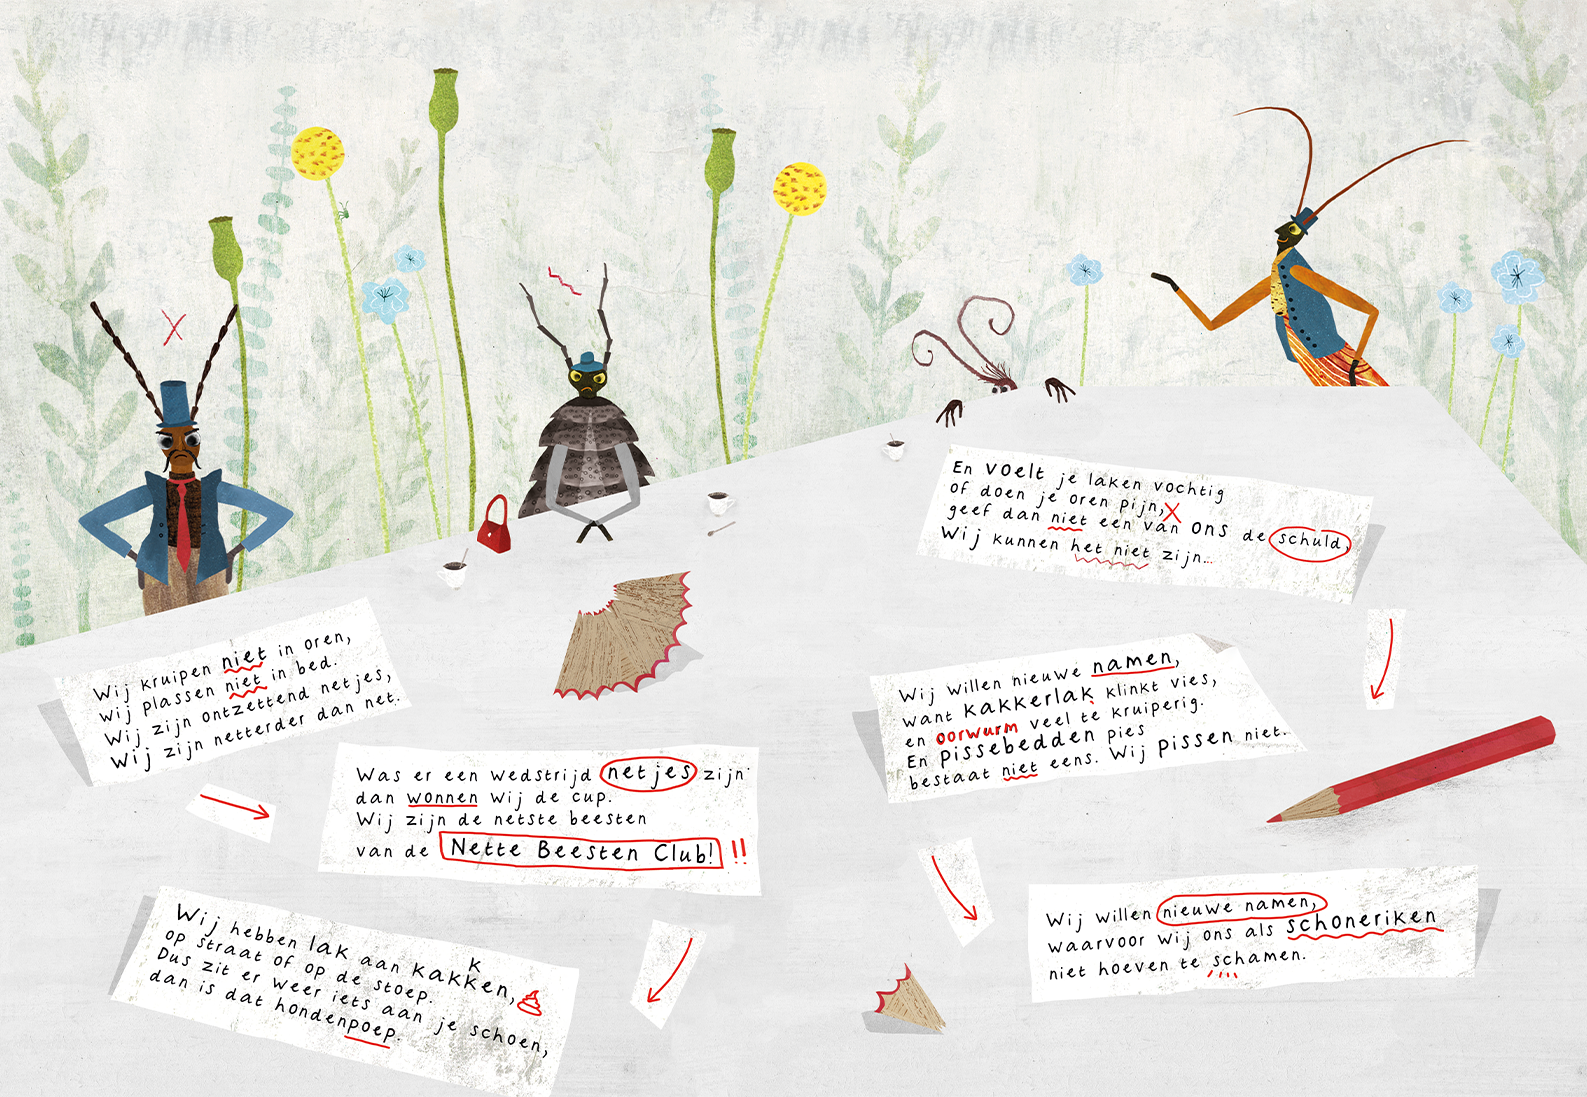 Wij kruipen niet in oren,
wij plassen niet in bed.
Wij zijn ontzettend netjes,
Wij zijn netterder dan net.
Was er een wedstrijd netjes zijn
dan wonnen wij de cup.
Wij zijn de netste beesten
van de Nette Beesten Club! !!
Wij hebben lak aan kakken, k
op straat of op de stoep.
Dus zit er weer iets aan je schoen,
dan is dat hondenpoep.
En voelt je laken vochtig
of doen je oren pijn,
geef dan niet een van ons de schuld,
Wij kunnen het niet zijn...
Wij willen nieuwe namen,
want kakkerlak klinkt vies,
en oorwurm veel te kruiperig.
En pissebedden pies
bestaat niet eens. Wij pissen niet.
Wij willen nieuwe namen,
waarvoor wij ons als schoneriken
niet hoeven te schamen.